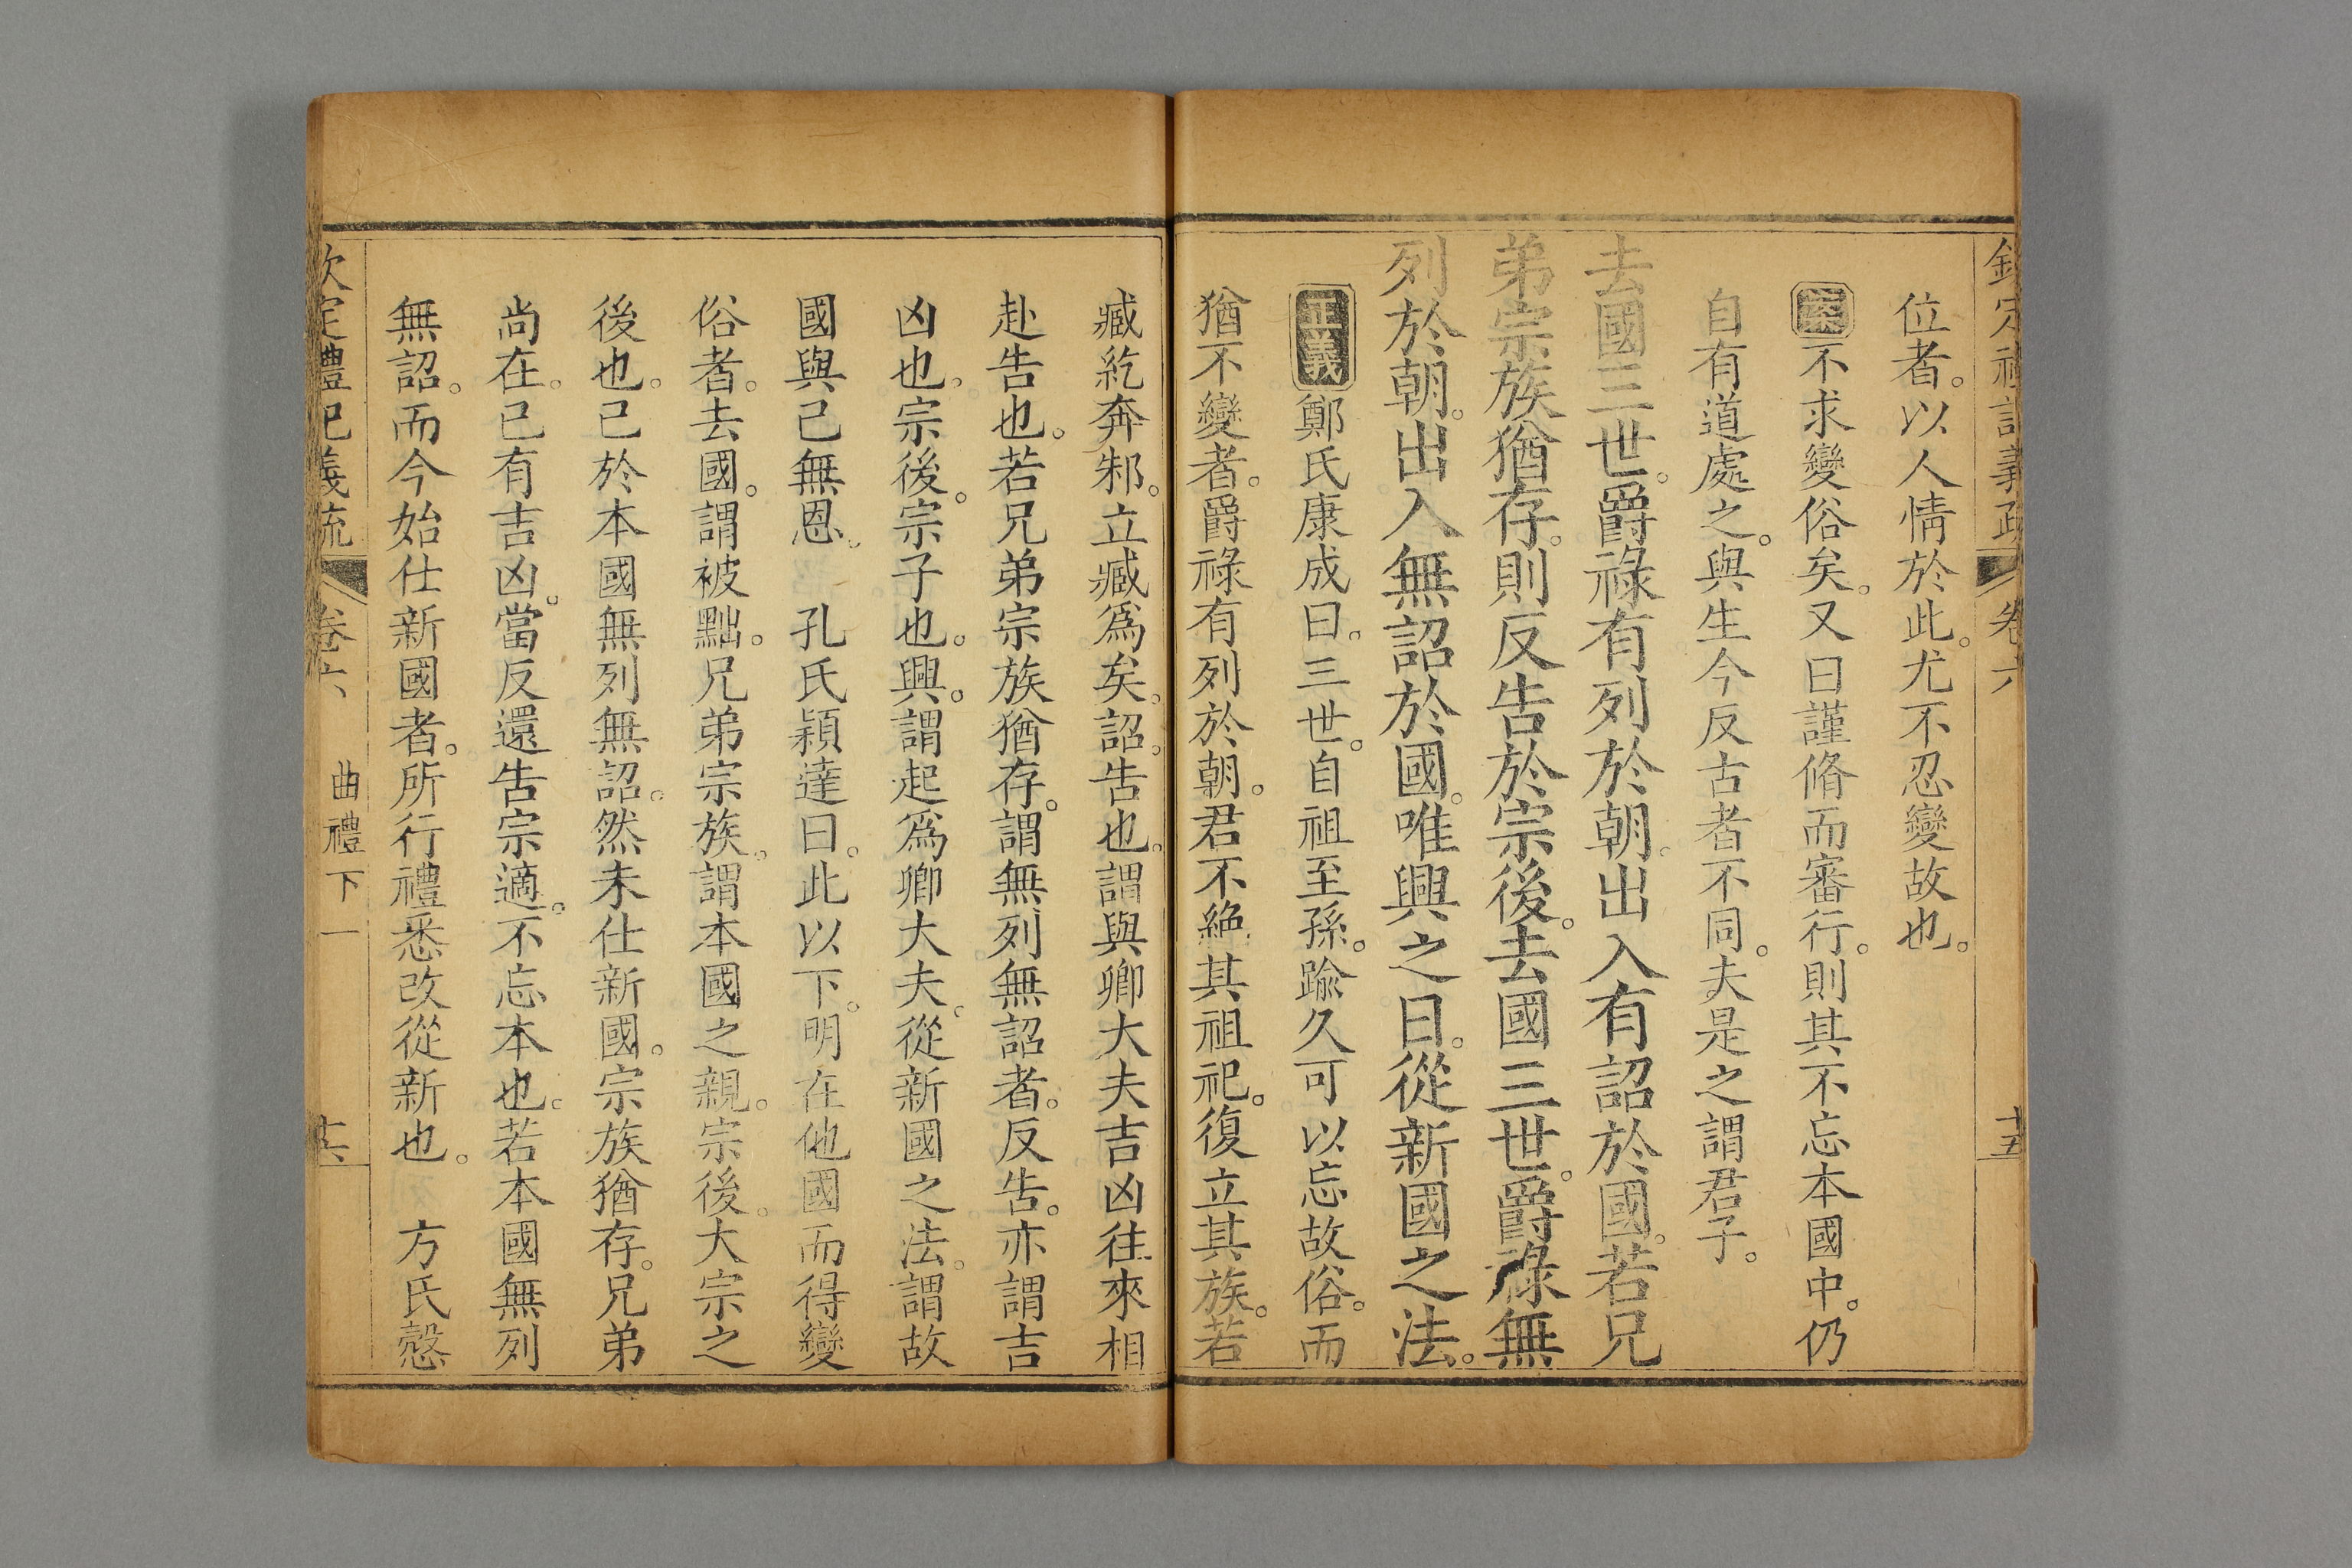 欽定禮記義疏 卷六 十五
位者。以人情於此。尤不忍變故也。
案不求變俗矣。又曰謹脩而審行。則其不忘本國中。仍
自有道處之。與生今反古者不同。夫是之謂君子。
去國三世。爵祿有列於朝。出入有詔於國。若兄
弟宗族猶存。則反告於宗後。去國三世。爵祿無
列於朝。出入無詔於國。唯興之日。從新國之法。
正義鄭氏康成曰。三世。自祖至孫。踰久可以忘故俗。而
猶不變者。爵祿有列於朝。君不絶其祖祀。復立其族。若
臧紇奔邾。立臧爲矣。詔。告也。謂與卿大夫吉凶往來相
赴告也。若兄弟宗族猶存。謂無列無詔者。反告。亦謂吉
凶也。宗後。宗子也。興。謂起爲卿大夫。從新國之法。謂故
國與己無恩。 孔氏穎達曰。此以下。明在他國而得變
俗者。去國。謂被黜。兄弟宗族。謂本國之親。宗後。大宗之
後也。己於本國無列無詔。然未仕新國。宗族猶存。兄弟
尚在。已有吉凶。當反還告宗適。不忘本也。若本國無列
無詔。而今始仕新國者。所行禮悉改從新也。 方氏慤
欽定禮記義疏 卷六 曲禮下一 十六